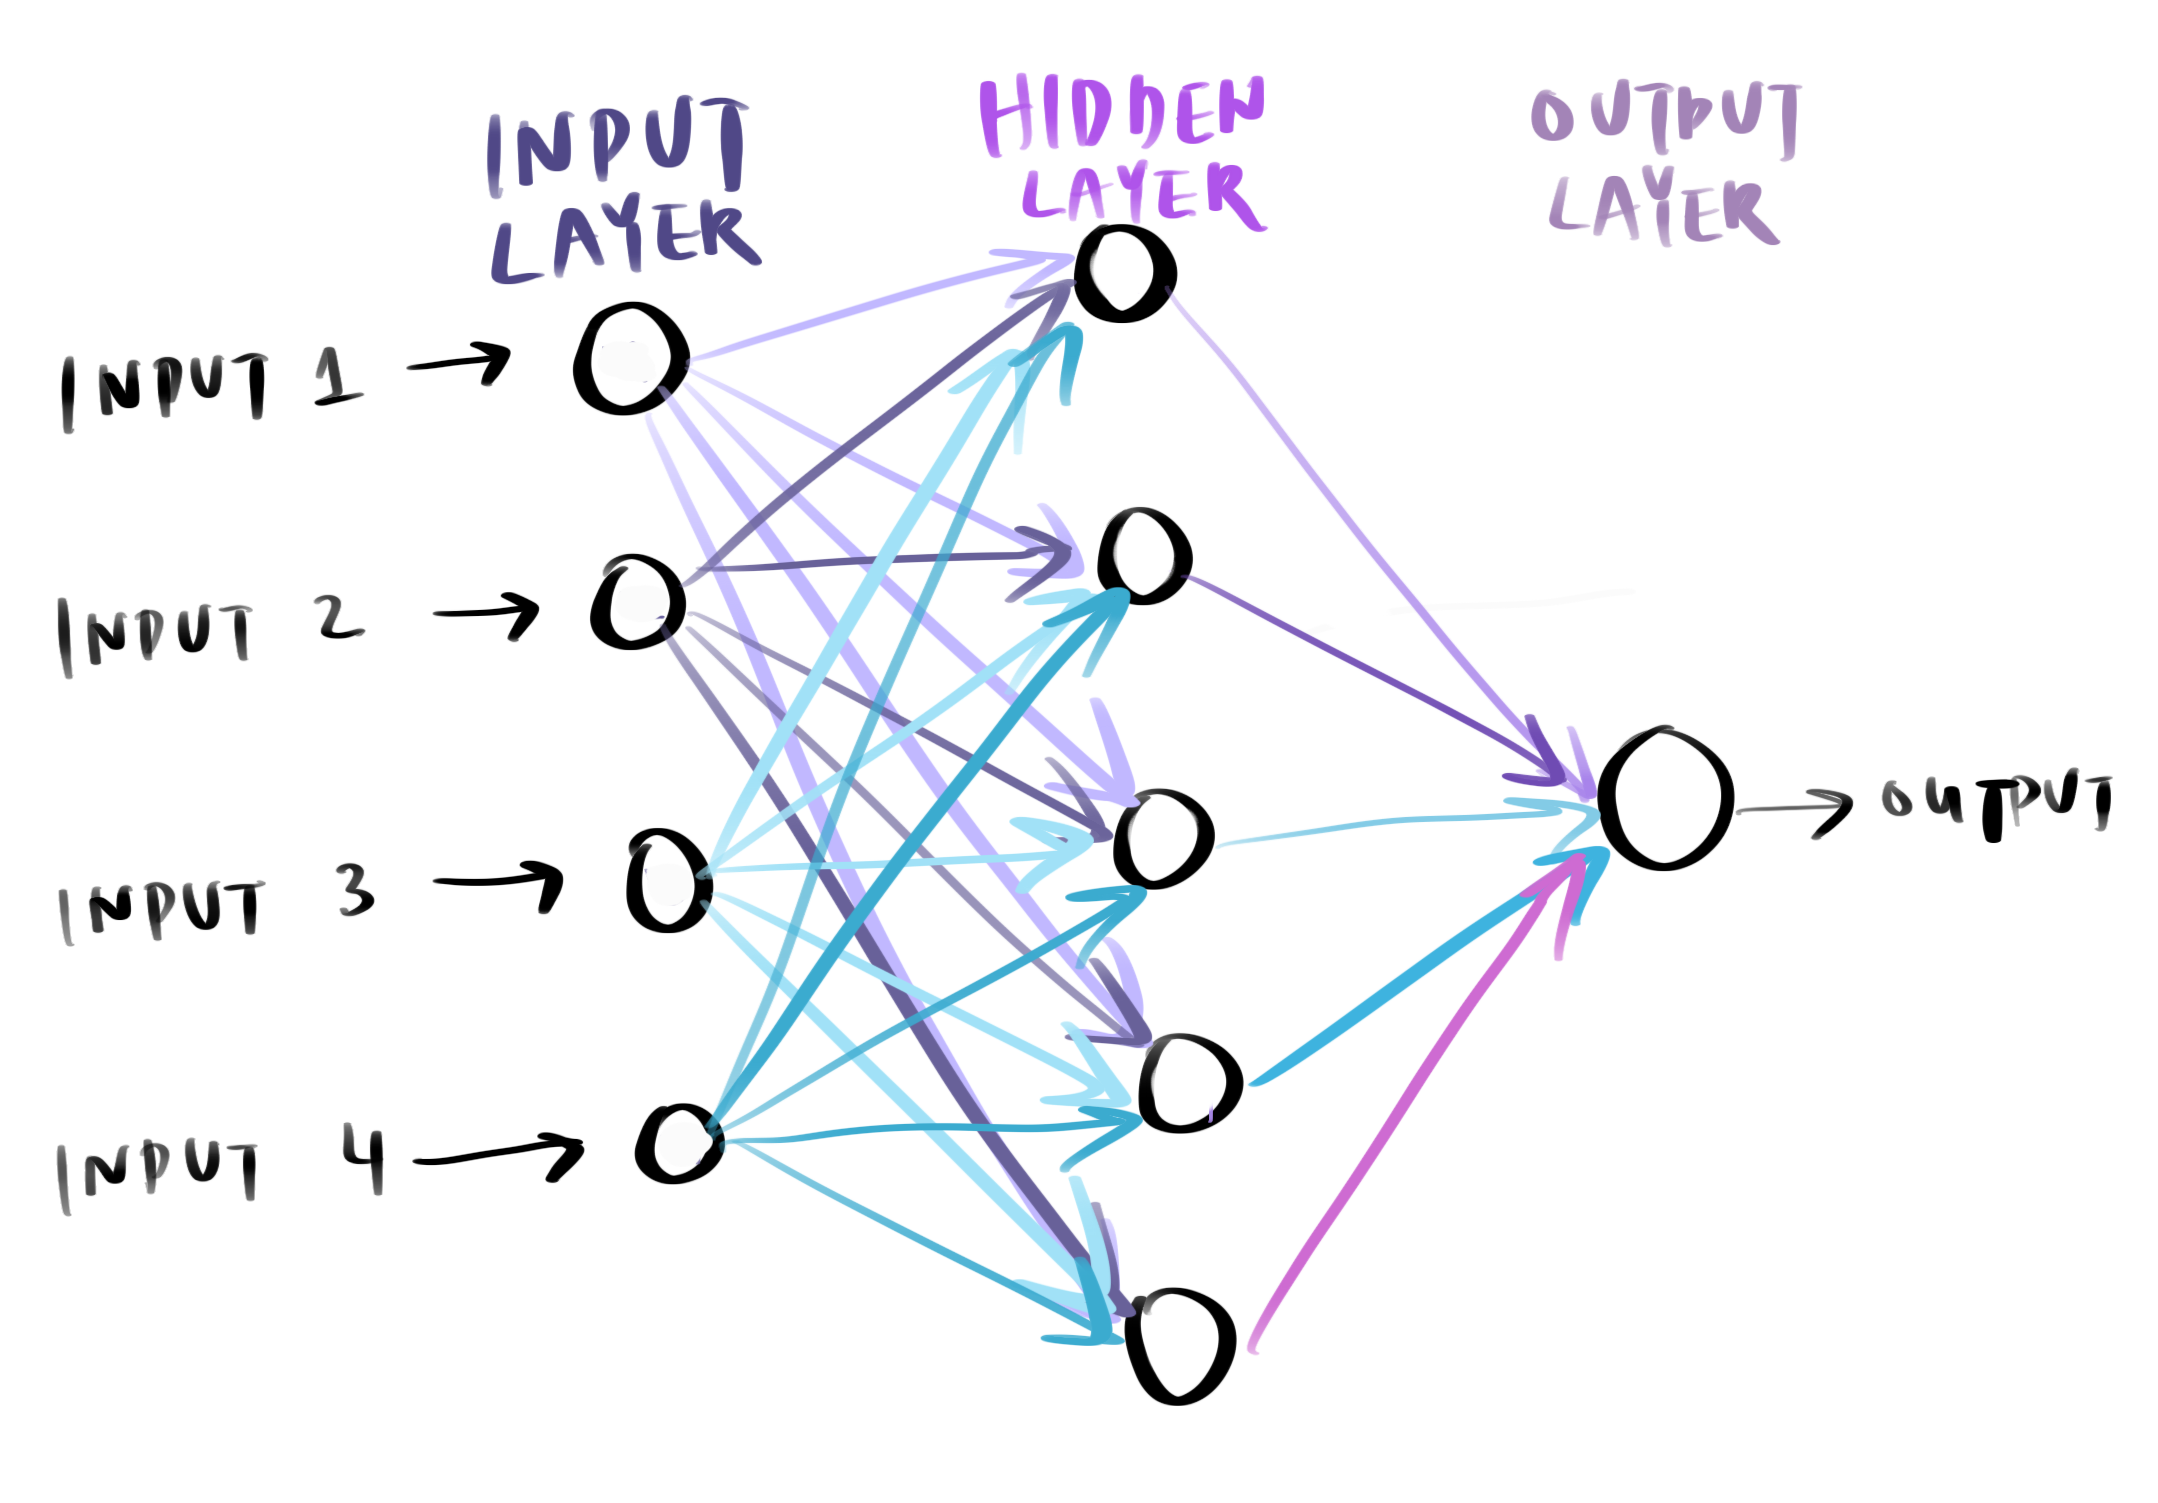 INPUT
LAYER
HIDDEN
LAYER
OUTPUT
LAYER
INPUT 1
INPUT 2
INPUT 3
INPUT 4
OUTPUT